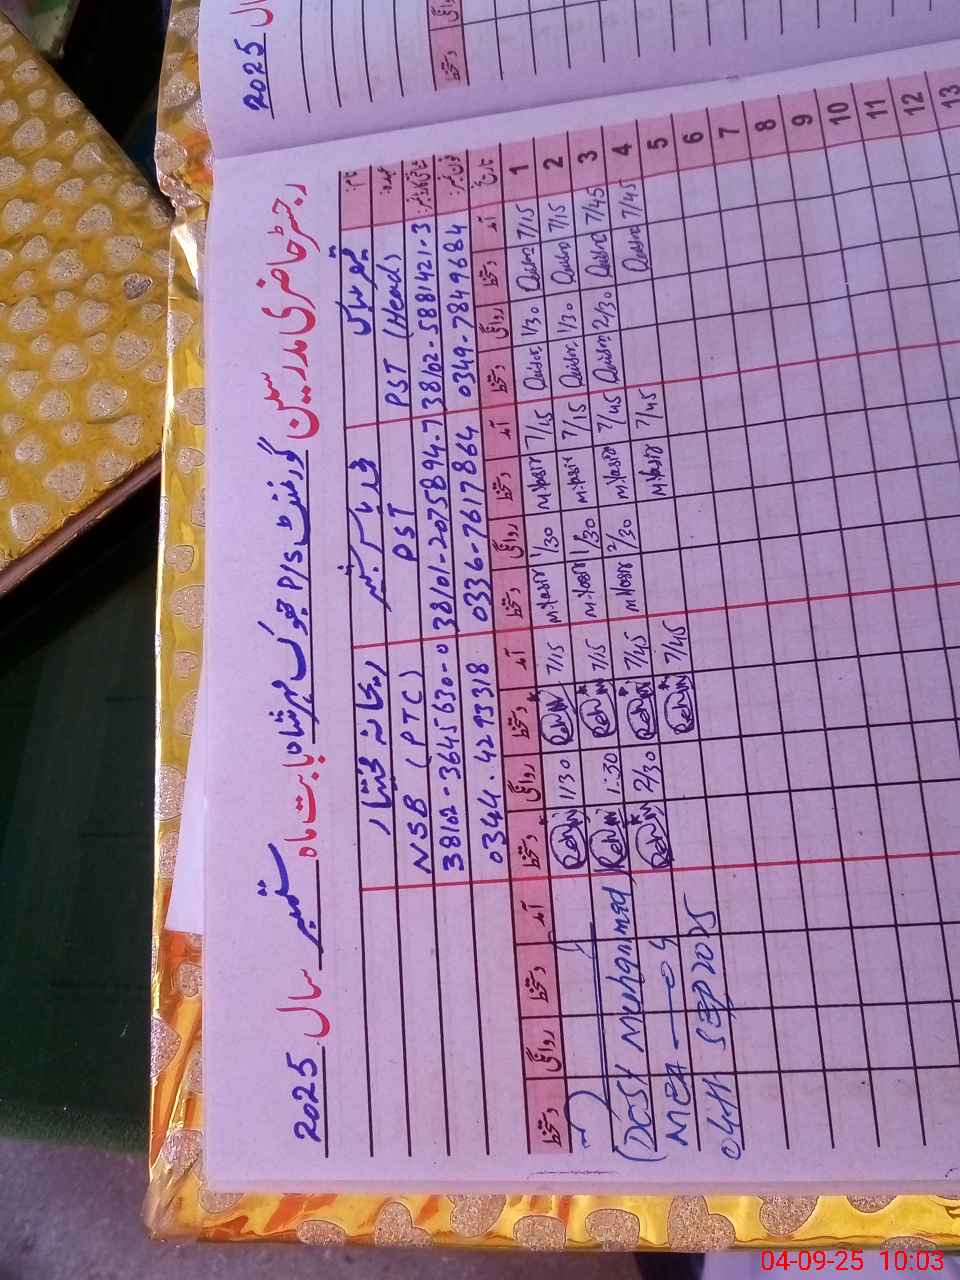 رجسٹر حاضری مدرسین گورنمنٹ P/S جوک میر شاہ بابت ماہ ستمبر سال 2025
نام:
عہدہ: PST (Head) PST NSB (PTC)
شناختی کارڈ نمبر: 38102-5881421-3 38101-2075894-7 38102-3645630-0
فون نمبر: 0349-7849684 0336-7617864 0344.4293318
تاریخ آمد دستخط روانگی دستخط آمد دستخط روانگی دستخط آمد دستخط روانگی دستخط آمد دستخط روانگی دستخط
1 7/15 1/30 7/15 M.Yasir 1/30 M.Yasir 7/15 1/30
2 7/15 1/30 7/15 M.Yasir 1/30 M.Yasir 7/15 1:30
3 7/45 2/30 7/45 M.Yasir 2/30 M.Yasir 7/45 2/30
4 7/45 7/45 M.Yasir 7/45
5
6
7
8
9
10
11
12
13
(DOST Muhammad)
MEA
04th SEP 2025
سال 2025
روانگی دستخط
04-09-25 10:03